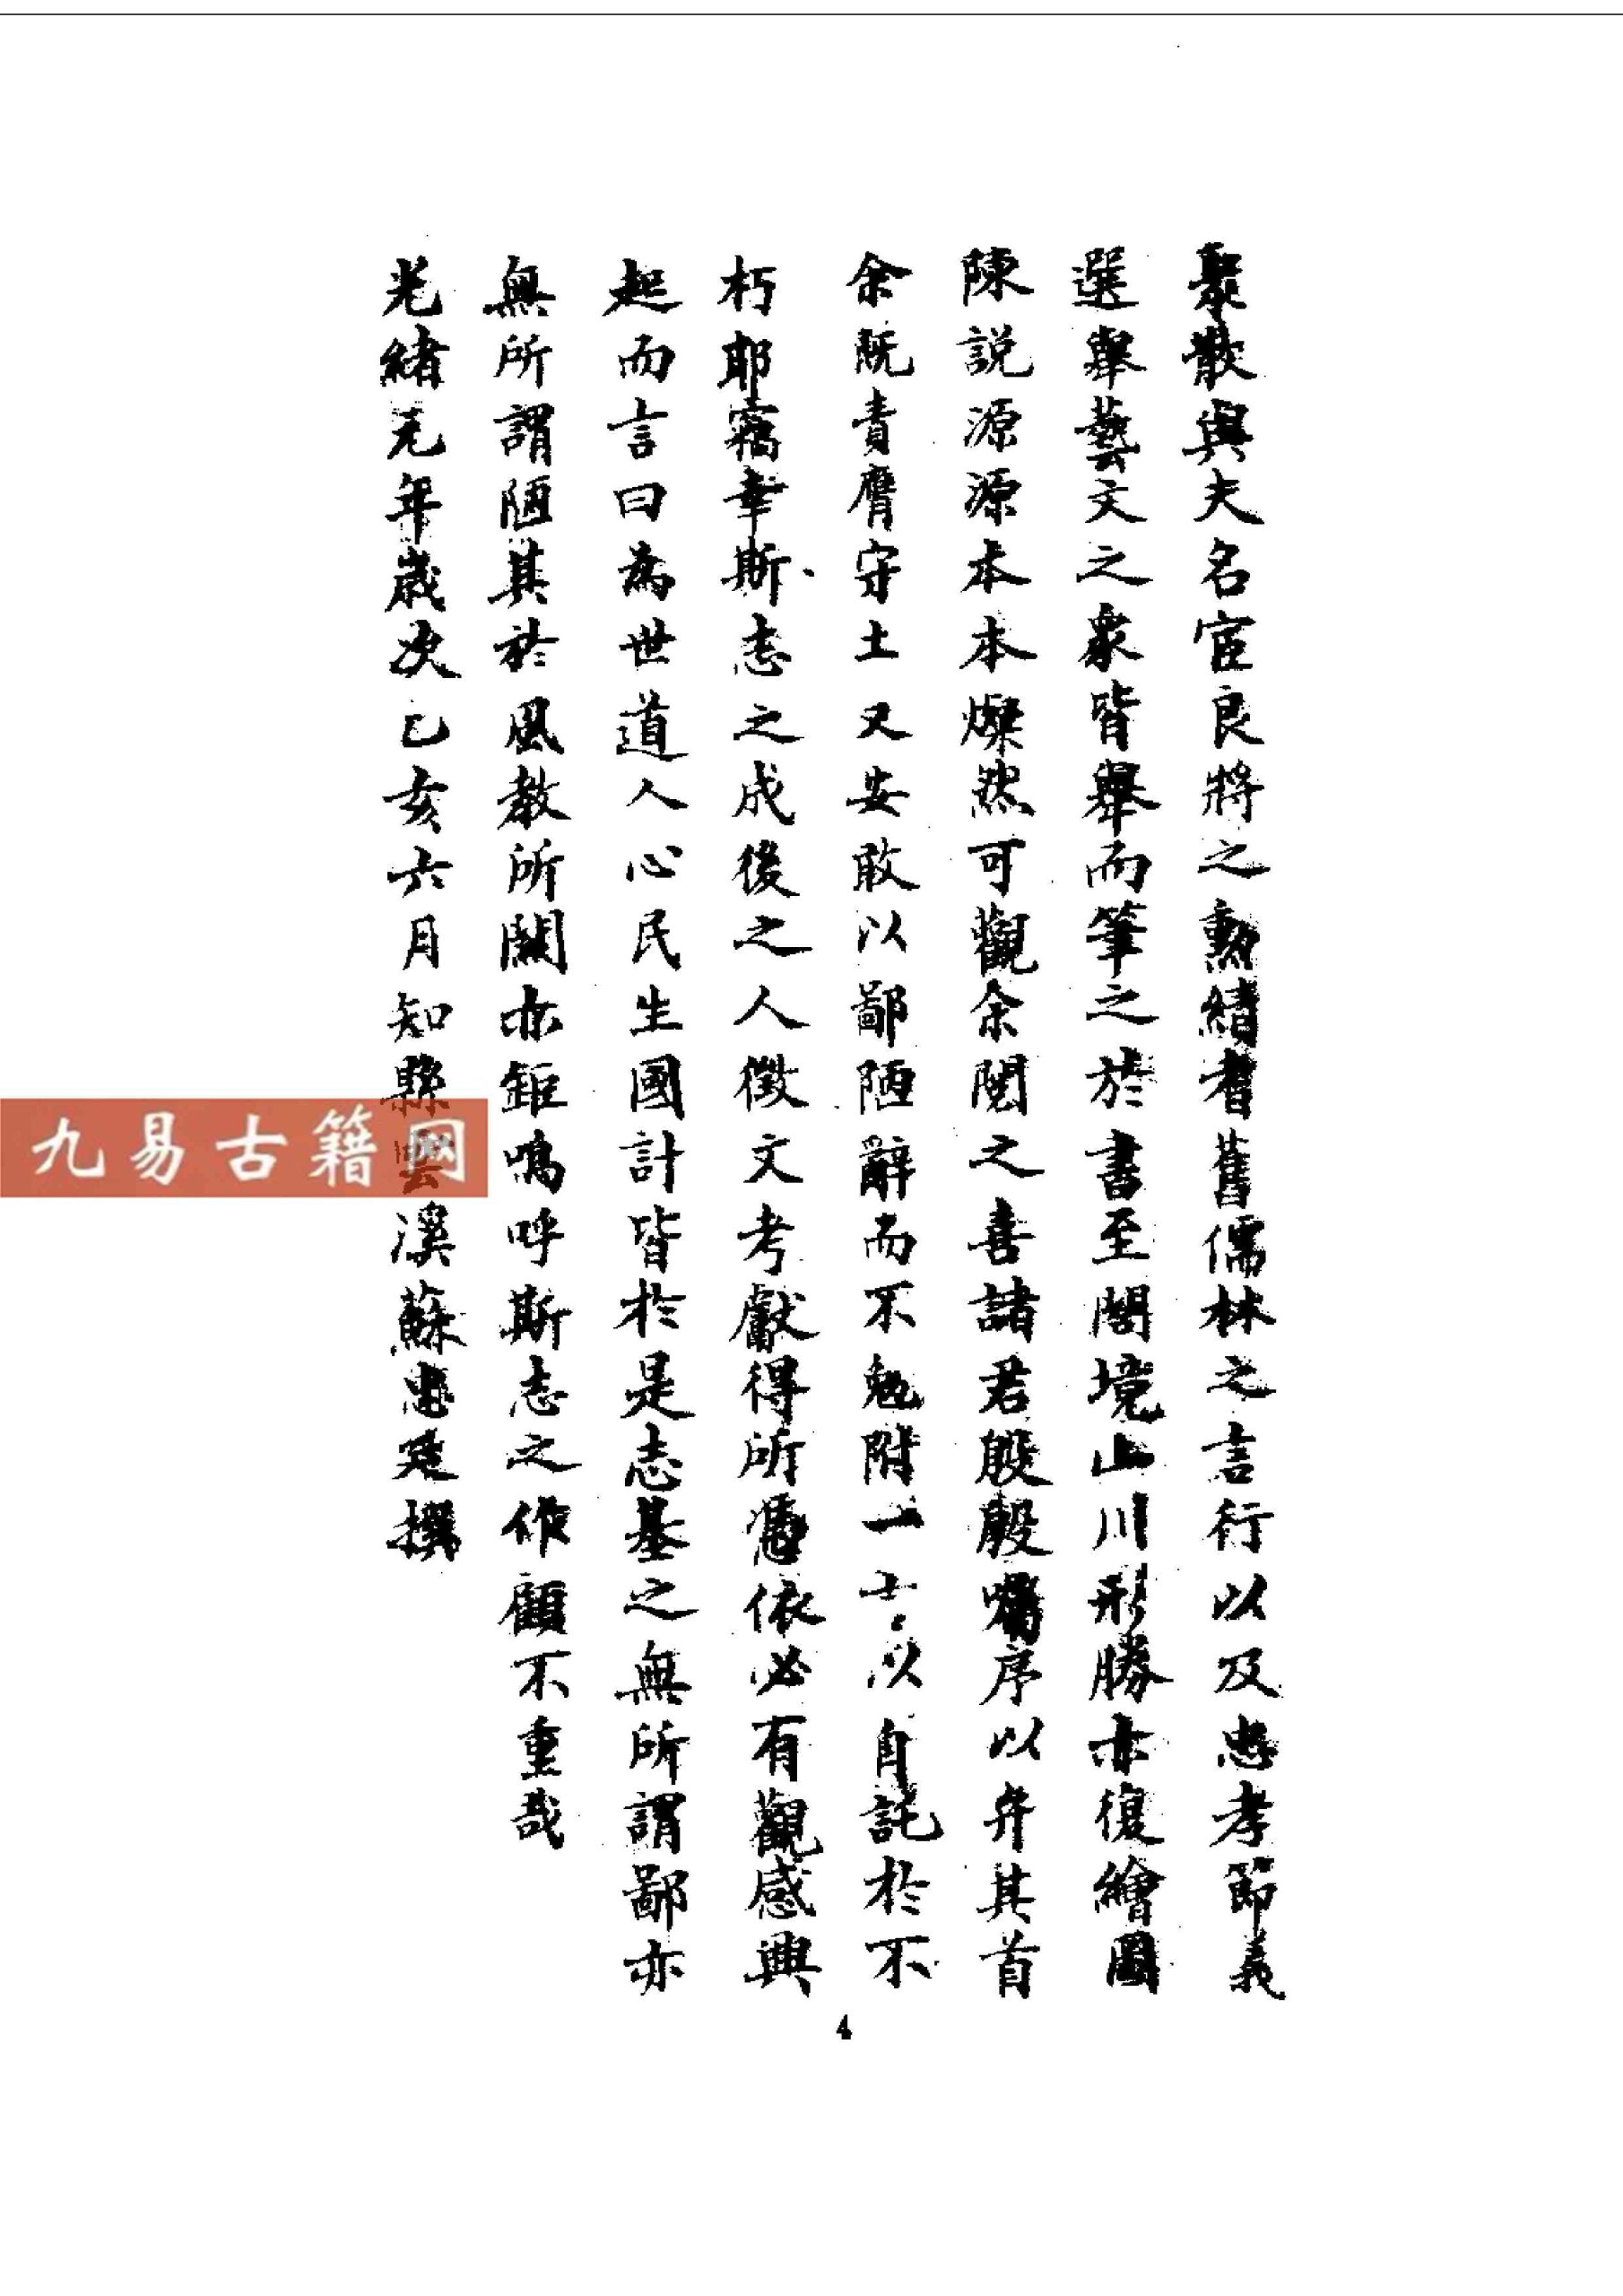 聚散與夫名宦良將之勳績耆舊儒林之言行以及忠孝節義
選舉藝文之衆皆舉而筆之於書至闔境山川形勝亦復繪圖
陳說源源本本燦然可觀余閱之喜諸君殷殷囑序以弁其首
余既責膺守土又安敢以鄙陋辭而不勉附一士以自託於不
朽耶竊幸斯志之成後之人徵文考獻得所憑依必有觀感興
起而言曰為世道人心民生國計皆於是志基之無所謂鄙亦
無所謂陋其於風教所關亦鉅嗚呼斯志之作顧不重哉
光緒元年歲次乙亥六月知縣雲溪蘇忠廷撰
九易古籍网
4